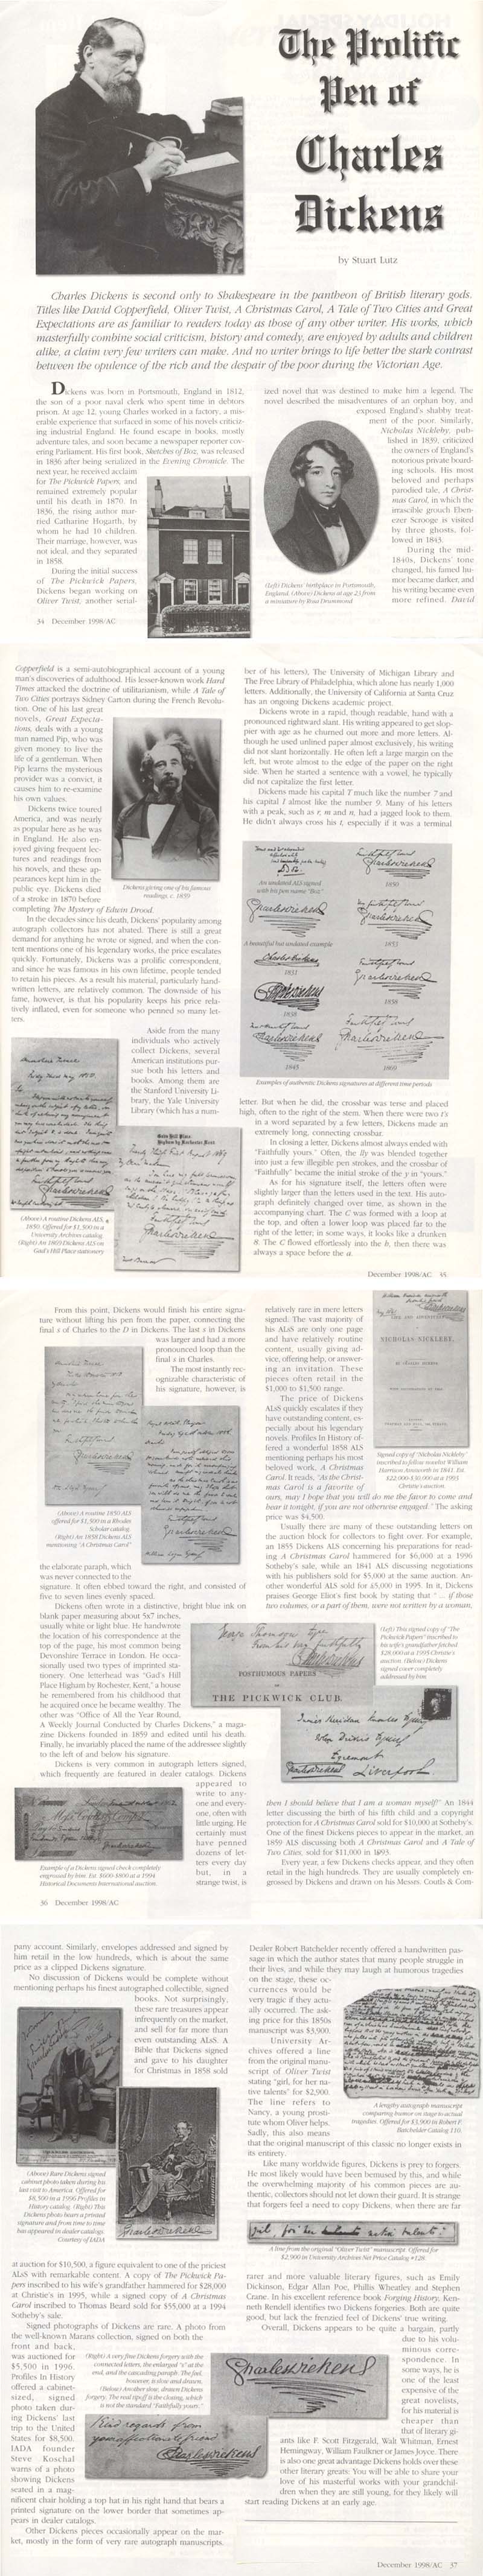 The Prolific
Pen of
Charles
Dickens
by Stuart Lutz
Charles Dickens is second only to Shakespeare in the pantheon of British literary gods.
Titles like David Copperfield, Oliver Twist, A Christmas Carol, A Tale of Two Cities and Great
Expectations are as familiar to readers today as those of any other writer. His works, which
masterfully combine social criticism, history and comedy, are enjoyed by adults and children
alike, a claim very few writers can make. And no writer brings to life better the stark contrast
between the opulence of the rich and the despair of the poor during the Victorian Age.
Dickens was born in Portsmouth, England in 1812,
the son of a poor naval clerk who spent time in debtors
prison. At age 12, young Charles worked in a factory, a mis-
erable experience that surfaced in some of his novels criticiz-
ing industrial England. He found escape in books, mostly
adventure tales, and soon became a newspaper reporter cov-
ering Parliament. His first book, Sketches of Boz, was released
in 1836 after being serialized in the Evening Chronicle. The
next year, he received acclaim
for The Pickwick Papers, and
remained extremely popular
until his death in 1870. In
1836, the rising author mar-
ried Catharine Hogarth, by
whom he had 10 children.
Their marriage, however, was
not ideal, and they separated
in 1858.
During the initial success
of The Pickwick Papers,
Dickens began working on
Oliver Twist, another serial-
34 December 1998/AC
ized novel that was destined to make him a legend. The
novel described the misadventures of an orphan boy, and
exposed England's shabby treat-
ment of the poor. Similarly,
Nicholas Nickleby, pub-
lished in 1839, criticized
the owners of England's
notorious private board-
ing schools. His most
beloved and perhaps
parodied tale, A Christ-
mas Carol, in which the
irrascible grouch Eben-
ezer Scrooge is visited
by three ghosts, fol-
lowed in 1843.
During the mid-
1840s, Dickens' tone
changed, his famed hu-
mor became darker, and
his writing became even
more refined. David
(Left) Dickens' birthplace in Portsmouth,
England. (Above) Dickens at age 23 from
a miniature by Rosa Drummond.
Copperfield is a semi-autobiographical account of a young
man's discoveries of adulthood. His lesser-known work Hard
Times attacked the doctrine of utilitarianism, while A Tale of
Two Cities portrays Sidney Carton during the French Revolu-
tion. One of his last great
novels, Great Expecta-
tions, deals with a young
man named Pip, who was
given money to live the
life of a gentleman. When
Pip learns the mysterious
provider was a convict, it
causes him to re-examine
his own values.
Dickens twice toured
America, and was nearly
as popular here as he was
in England. He also en-
joyed giving frequent lec-
tures and readings from
his novels, and these ap-
pearances kept him in the
public eye. Dickens died
of a stroke in 1870 before
completing The Mystery of Edwin Drood.
Dickens giving one of his famous
readings, c. 1859
In the decades since his death, Dickens' popularity among
autograph collectors has not abated. There is still a great
demand for anything he wrote or signed, and when the con-
tent mentions one of his legendary works, the price escalates
quickly. Fortunately, Dickens was a prolific correspondent,
and since he was famous in his own lifetime, people tended
to retain his pieces. As a result his material, particularly hand-
written letters, are relatively common. The downside of his
fame, however, is that his popularity keeps his price rela-
tively inflated, even for someone who penned so many let-
ters.
Aside from the many
individuals who actively
collect Dickens, several
American institutions pur-
sue both his letters and
books. Among them are
the Stanford University Li-
brary, the Yale University
Library (which has a num-
(Above) A routine Dickens ALS,
1850. Offered for $1,500 in a
University Archives catalog.
(Right) An 1869 Dickens ALS on
Gad's Hill Place stationery
ber of his letters), The University of Michigan Library and
The Free Library of Philadelphia, which alone has nearly 1,000
letters. Additionally, the University of California at Santa Cruz
has an ongoing Dickens academic project.
Dickens wrote in a rapid, though readable, hand with a
pronounced rightward slant. His writing appeared to get slop-
pier with age as he churned out more and more letters. Al-
though he used unlined paper almost exclusively, his writing
did not slant horizontally. He often left a large margin on the
left, but wrote almost to the edge of the paper on the right
side. When he started a sentence with a vowel, he typically
did not capitalize the first letter.
Dickens made his capital T much like the number 7 and
his capital I almost like the number 9. Many of his letters
with a peak, such as r, m and n, had a jagged look to them.
He didn't always cross his t, especially if it was a terminal
An undated ALS signed
with his pen name "Boz"
1850
A beautiful but undated example
1853
1831
1838
1858
1845
1869
Examples of authentic Dickens signatures at different time periods
letter. But when he did, the crossbar was terse and placed
high, often to the right of the stem. When there were two t's
in a word separated by a few letters, Dickens made an
extremely long, connecting crossbar.
In closing a letter, Dickens almost always ended with
"Faithfully yours." Often, the lly was blended together
into just a few illegible pen strokes, and the crossbar of
"Faithfully" became the initial stroke of the y in "yours."
As for his signature itself, the letters often were
slightly larger than the letters used in the text. His auto-
graph definitely changed over time, as shown in the
accompanying chart. The C was formed with a loop at
the top, and often a lower loop was placed far to the
right of the letter; in some ways, it looks like a drunken
8. The C flowed effortlessly into the h, then there was
always a space before the a.
December 1998/AC 35
From this point, Dickens would finish his entire signa-
ture without lifting his pen from the paper, connecting the
final s of Charles to the D in Dickens. The last s in Dickens
was larger and had a more
pronounced loop than the
final s in Charles.
The most instantly rec-
ognizable characteristic of
his signature, however, is
(Above) A routine 1850 ALS
offered for $1,500 in a Rhodes
Scholar catalog.
(Right) An 1858 Dickens ALS
mentioning "A Christmas Carol"
the elaborate paraph, which
was never connected to the
signature. It often ebbed toward the right, and consisted of
five to seven lines evenly spaced.
Dickens often wrote in a distinctive, bright blue ink on
blank paper measuring about 5x7 inches,
usually white or light blue. He handwrote
the location of his correspondence at the
top of the page, his most common being
Devonshire Terrace in London. He occa-
sionally used two types of imprinted sta-
tionery. One letterhead was "Gad's Hill
Place Higham by Rochester, Kent," a house
he remembered from his childhood that
he acquired once he became wealthy. The
other was "Office of All the Year Round,
A Weekly Journal Conducted by Charles Dickens," a maga-
zine Dickens founded in 1859 and edited until his death.
Finally, he invariably placed the name of the addressee slightly
to the left of and below his signature.
Dickens is very common in autograph letters signed,
which frequently are featured in dealer catalogs. Dickens
appeared to
write to any-
one and every-
one, often with
little urging. He
certainly must
have penned
dozens of let-
ters every day
but, in a
strange twist, is
Example of a Dickens signed check completely
engrossed by him. Est. $600-$800 at a 1994
Historical Documents International auction.
36 December 1998/AC
relatively rare in mere letters
signed. The vast majority of
his ALsS are only one page
and have relatively routine
content, usually giving ad-
vice, offering help, or answer-
ing an invitation. These
pieces often retail in the
$1,000 to $1,500 range.
The price of Dickens
ALsS quickly escalates if they
have outstanding content, es-
pecially about his legendary
novels. Profiles In History of-
fered a wonderful 1858 ALS
mentioning perhaps his most
beloved work, A Christmas
Carol. It reads, "As the Christ-
mas Carol is a favorite of
ours, may I hope that you will do me the favor to come and
hear it tonight, if you are not otherwise engaged." The asking
price was $4,500.
NICHOLAS NICKLEBY,
Signed copy of "Nicholas Nickleby"
inscribed to fellow novelist William
Harrison Ainsworth in 1841. Est.
$22,000-$30,000 at a 1993
Christie's auction.
Usually there are many of these outstanding letters on
the auction block for collectors to fight over. For example,
an 1855 Dickens ALS concerning his preparations for read-
ing A Christmas Carol hammered for $6,000 at a 1996
Sotheby's sale, while an 1841 ALS discussing negotiations
with his publishers sold for $5,000 at the same auction. An-
other wonderful ALS sold for $5,000 in 1995. In it, Dickens
praises George Eliot's first book by stating that "... if those
two volumes, or a part of them, were not written by a woman,
POSTHUMOUS PAPERS
THE PICKWICK CLUB.
(Left) This signed copy of "The
Pickwick Papers" inscribed to
his wife's grandfather fetched
$28,000 at a 1995 Christie's
auction. (Below) Dickens
signed cover completely
addressed by him
then I should believe that I am a woman myself!" An 1844
letter discussing the birth of his fifth child and a copyright
protection for A Christmas Carol sold for $10,000 at Sotheby's.
One of the finest Dickens pieces to appear in the market, an
1859 ALS discussing both A Christmas Carol and A Tale of
Two Cities, sold for $11,000 in 1993.
Every year, a few Dickens checks appear, and they often
retail in the high hundreds. They are usually completely en-
grossed by Dickens and drawn on his Messrs. Coutls & Com-
pany account. Similarly, envelopes addressed and signed by
him retail in the low hundreds, which is about the same
price as a clipped Dickens signature.
No discussion of Dickens would be complete without
mentioning perhaps his finest autographed collectible, signed
books. Not surprisingly,
these rare treasures appear
infrequently on the market,
and sell for far more than
even outstanding ALsS. A
Bible that Dickens signed
and gave to his daughter
for Christmas in 1858 sold
(Above) Rare Dickens signed
cabinet photo taken during his
last visit to America. Offered for
$8,500 in a 1996 Profiles in
History catalog. (Right) This
Dickens photo bears a printed
signature and from time to time
has appeared in dealer catalogs.
Courtesy of IADA
at auction for $10,500, a figure equivalent to one of the priciest
ALsS with remarkable content. A copy of The Pickwick Pa-
pers inscribed to his wife's grandfather hammered for $28,000
at Christie's in 1995, while a signed copy of A Christmas
Carol inscribed to Thomas Beard sold for $55,000 at a 1994
Sotheby's sale.
Signed photographs of Dickens are rare. A photo from
the well-known Marans collection, signed on both the
front and back,
was auctioned for
$5,500 in 1996.
Profiles In History
offered a cabinet-
sized, signed
photo taken dur-
ing Dickens' last
trip to the United
States for $8,500.
IADA founder
Steve Koschal
warns of a photo
showing Dickens
seated in a mag-
nificent chair holding a top hat in his right hand that bears a
printed signature on the lower border that sometimes ap-
pears in dealer catalogs.
Other Dickens pieces occasionally appear on the mar-
ket, mostly in the form of very rare autograph manuscripts.
(Right) A very fine Dickens forgery with the
connected letters, the enlarged "s" at the
end, and the cascading paraph. The feel,
however, is slow and drawn.
(Below) Another slow, drawn Dickens
forgery. The real tipoff is the closing, which
is not the standard "Faithfully yours."
Dealer Robert Batchelder recently offered a handwritten pas-
sage in which the author states that many people struggle in
their lives, and while they may laugh at humorous tragedies
on the stage, these oc-
currences would be
very tragic if they actu-
ally occurred. The ask-
ing price for this 1850s
manuscript was $3,900.
University Ar-
chives offered a line
from the original manu-
script of Oliver Twist
stating "girl, for her na-
tive talents" for $2,900.
The line refers to
Nancy, a young prosti-
tute whom Oliver helps.
Sadly, this also means
that the original manuscript of this classic no longer exists in
its entirety.
A lengthy autograph manuscript
comparing humor on stage to actual
tragedies. Offered for $3,900 in Robert F.
Batchelder Catalog 110.
Like many worldwide figures, Dickens is prey to forgers.
He most likely would have been bemused by this, and while
the overwhelming majority of his common pieces are au-
thentic, collectors should not let down their guard. It is strange
that forgers feel a need to copy Dickens, when there are far
A line from the original "Oliver Twist" manuscript. Offered for
$2,900 in University Archives Net Price Catalog #128.
rarer and more valuable literary figures, such as Emily
Dickinson, Edgar Allan Poe, Phillis Wheatley and Stephen
Crane. In his excellent reference book Forging History, Ken-
neth Rendell identifies two Dickens forgeries. Both are quite
good, but lack the frenzied feel of Dickens' true writing.
Overall, Dickens appears to be quite a bargain, partly
due to his volu-
minous corre-
spondence. In
some ways, he is
one of the least
expensive of the
great novelists,
for his material is
cheaper than
that of literary gi-
ants like F. Scott Fitzgerald, Walt Whitman, Ernest
Hemingway, William Faulkner or James Joyce. There
is also one great advantage Dickens holds over these
other literary greats: You will be able to share your
love of his masterful works with your grandchil-
dren when they are still young, for they likely will
start reading Dickens at an early age.
December 1998/AC 37